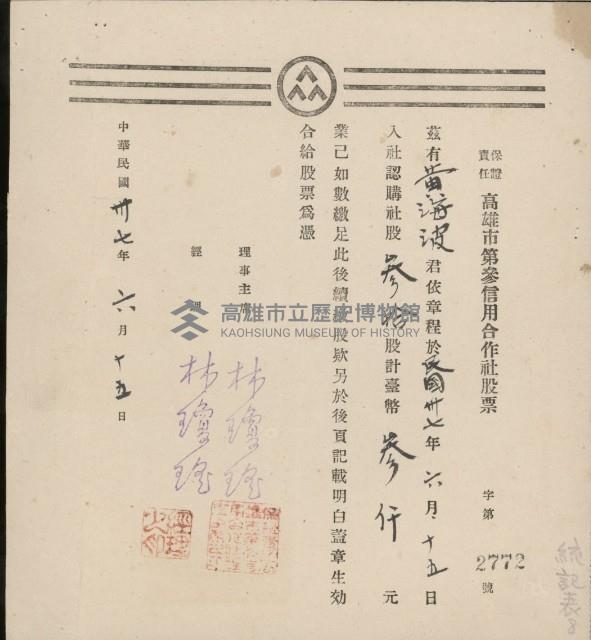 保證
責任
高雄市第參信用合作社股票
字第2772號
茲有黃海波君依章程於民國卅七年六月十五日
入社認購社股參拾股計臺幣參仟元
業已如數繳足此後續繳股欵另於後頁記載明白蓋章生効
合給股票爲憑
理事主席 林瓊瑤
經理 林瓊瑤
中華民國卅七年六月十五日
高雄市立歷史博物館
KAOHSIUNG MUSEUM OF HISTORY